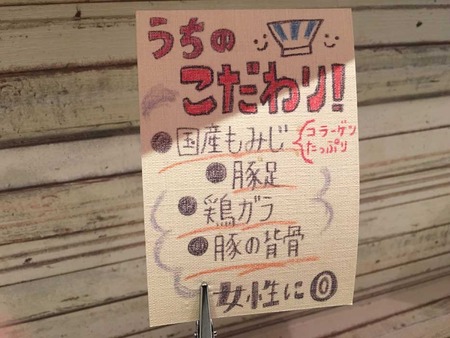 うちの
こだわり!
●国産もみじ
コラーゲン
たっぷり
●豚足
●鶏ガラ
●豚の背骨
女性に◎